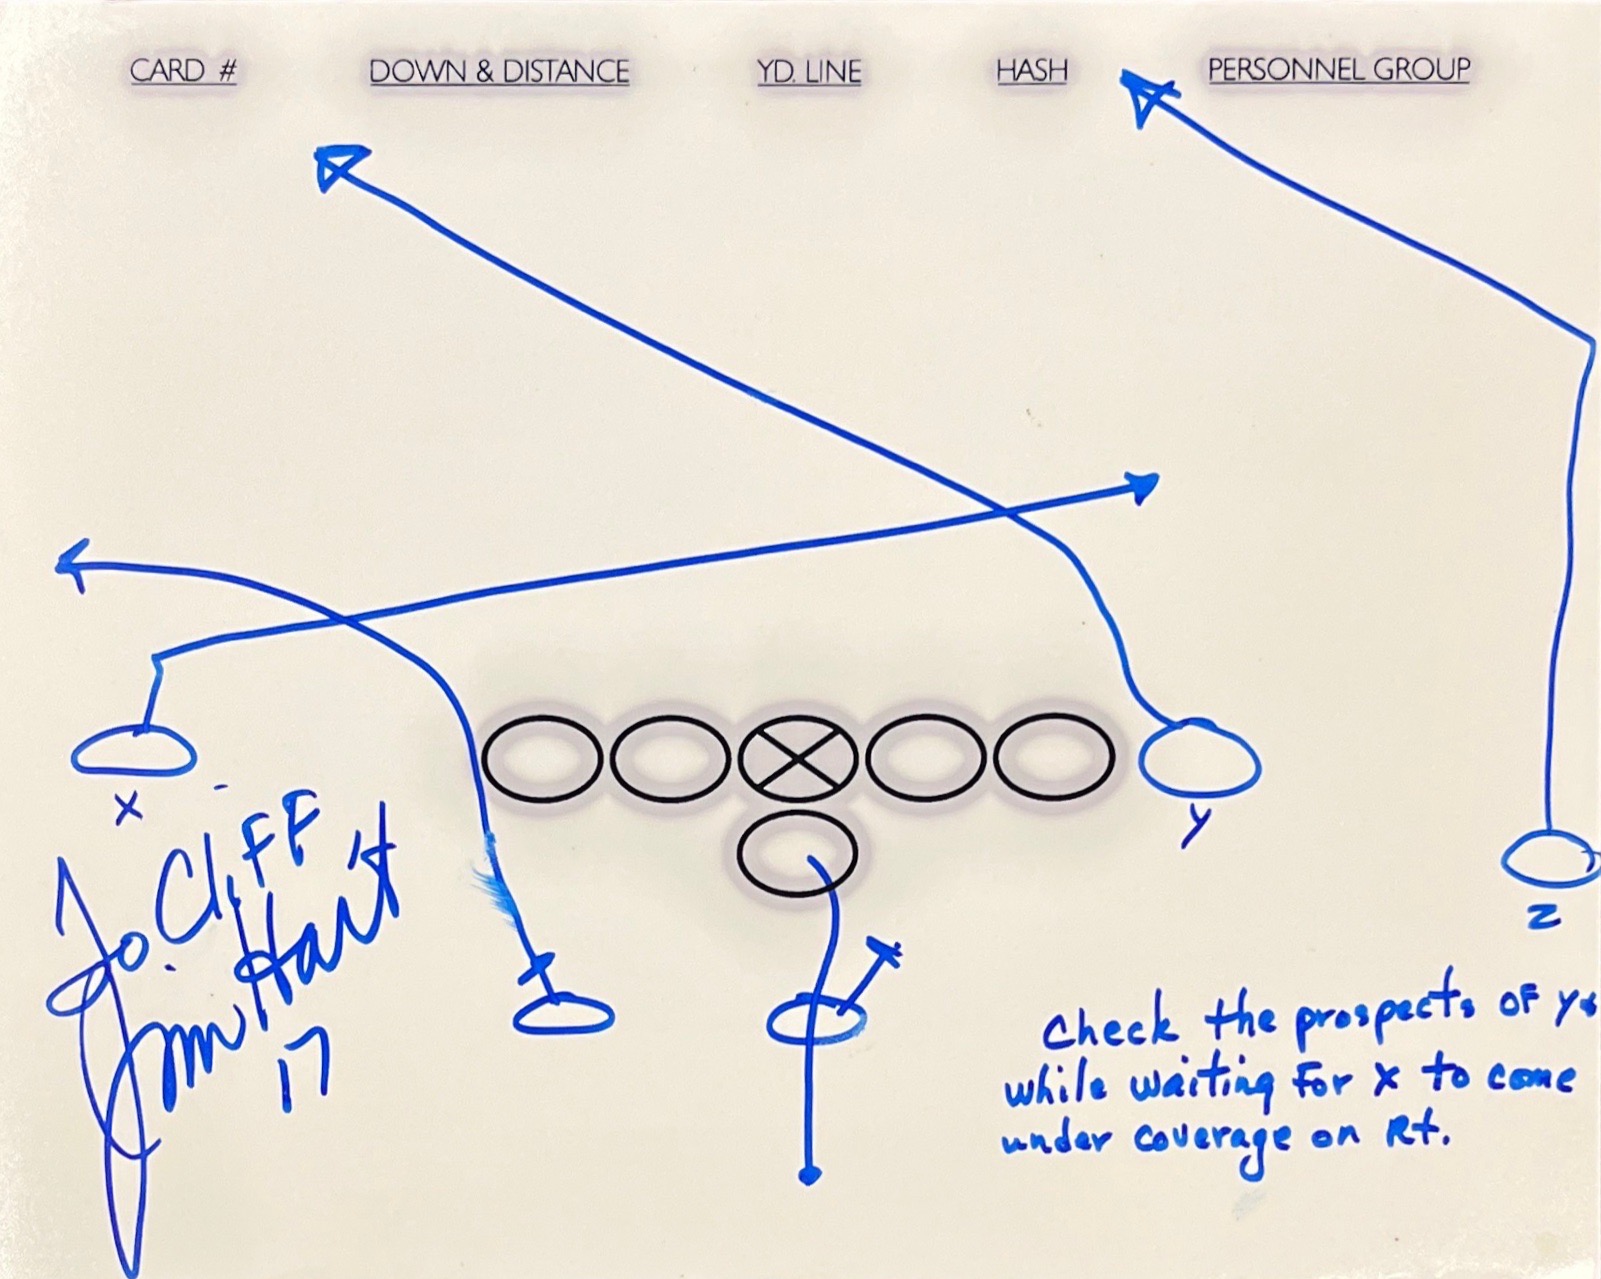 CARD # DOWN & DISTANCE YD. LINE HASH PERSONNEL GROUP
X
Y
Z
To Cliff
Jim Hart
17
Check the prospects of Y
while waiting for X to come
under coverage on Rt.